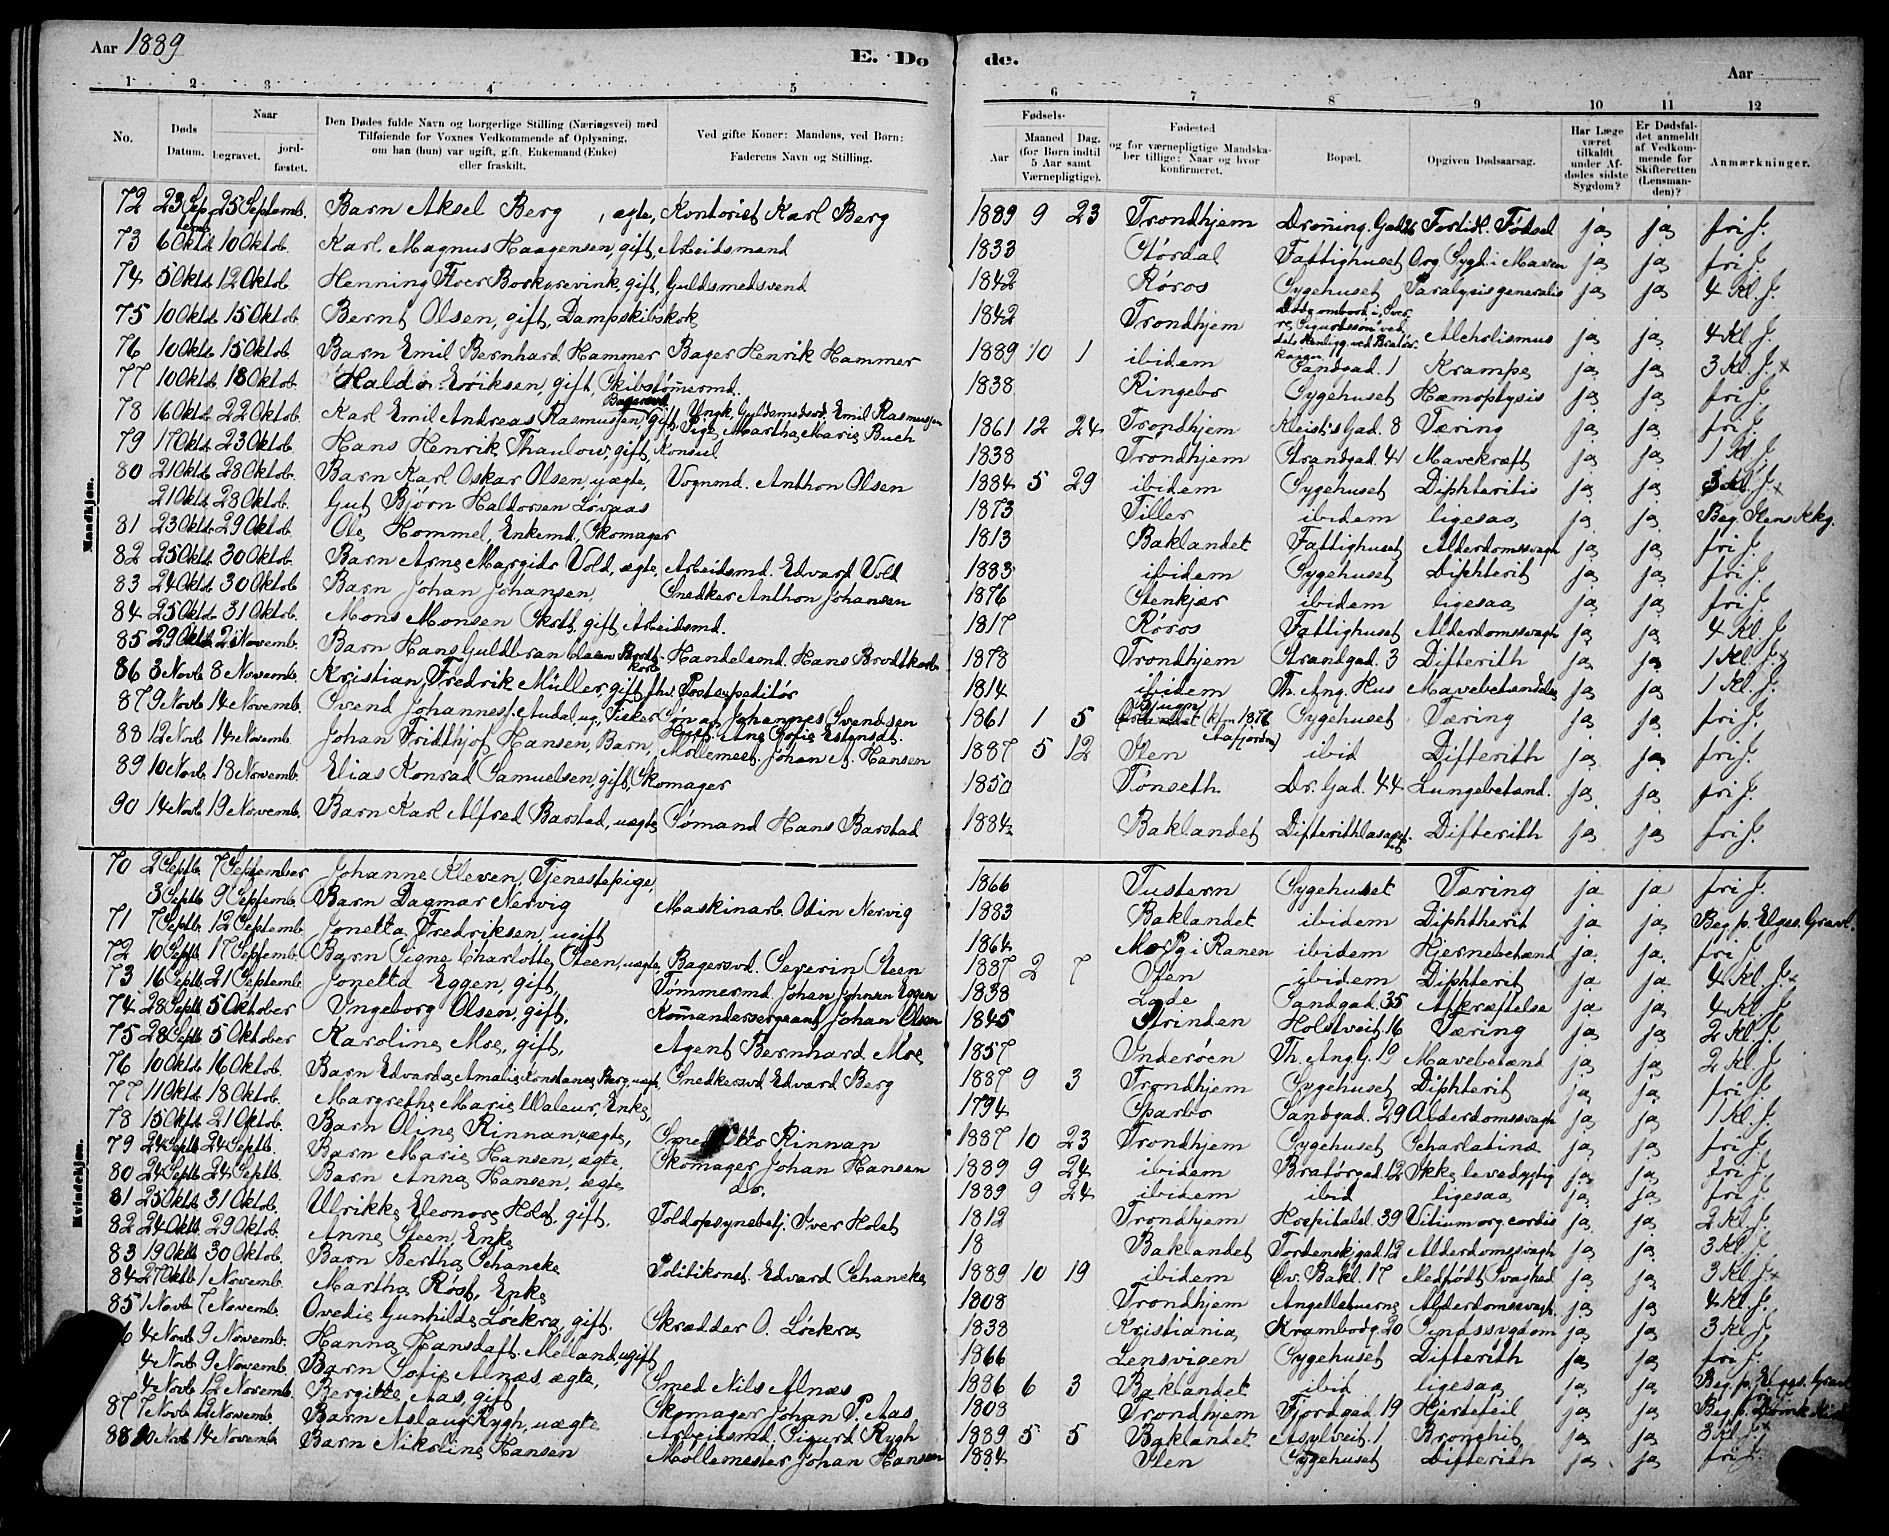 Aar 1889
E. Dø
de.
Aar
1 2 3 4 5 6 7 8 9 10 11 12
No.
Døds Datum.
Naar
begravet.
jordfæstet.
Den Dødes fulde Navn og borgerlige Stilling (Næringsvei) med Tilføiende for Voxnes Vedkommende af Oplysning, om han (hun) var ugift, gift, Enkemand (Enke) eller fraskilt.
Ved gifte Koner: Mandens, ved Børn: Faderens Navn og Stilling.
Fødsels-
Aar
Maaned Dag. (for Børn indtil 5 Aar samt Værnepligtige).
Fødested og for værnepligtige Mandskaber tillige: Naar og hvor konfirmeret.
Bopæl.
Opgiven Dødsaarsag.
Har Læge været tilkaldt under Afdødes sidste Sygdom?
Er Dødsfaldet anmeldt af Vedkommende for Skifteretten (Lensmanden)?
Anmærkninger.
Mandkjøn.
72 23 September 25 Septemb. Barn Aksel Berg, ægte, Kontorist Karl Berg 1889 9 23 Trondhjem Droning. Gad 26 Fortidl. Fødsel ja ja fri J.
73 6 Oktb 10 Oktob. Karl Magnus Haagensen, gift, Arbeidsmand 1833 Størdal Fattighuset Org Sygd. i Maven ja ja fri J.
74 5 Oktb 12 Oktob. Henning Floer Borkgrevink, gift, Guldsmedsvend 1842 Røros Sygehuset Paralysis generalis ja ja 4 Kl. J.
75 10 Oktb 15 Oktob. Bernt Olsen, gift, Dampskibskok 1842 Trondhjem Døde ombord i Alcholismus ja ja 4 Kl. J.
76 10 Oktb 15 Oktob. Barn Emil Bernhard Hammer Bager Henrik Hammer 1889 10 1 ibidem Sandgad. 1 Krampe ja ja 3 Kl. J. x
77 10 Oktb 18 Oktob. Haldo Eriksen, gift, Skibstømermd. 1838 Ringebo Sygehuset Hæmoptysis ja ja fri J.
78 16 Oktob 22 Oktob. Karl Emil Andreas Rasmussen, gift Bagersvd. Ungk. Gyldsmedsvd. Emil Rasmussen Pige Martha Marie Buch 1861 12 24 Trondhjem Kleists Gad. 8 Tæring ja ja fri J.
79 17 Oktb 23 Oktob. Hans Henrik Thaulow, gift, Konsul 1838 Trondhjem Strandgad. 41 Mavekræft ja ja 1 Kl J.
80 21 Oktb 28 Oktob. Barn Karl Oskar Olsen, uægte, Vognmd. Anthon Olsen 1884 5 29 ibidem Sygehuset Diphteritis ja ja 3 Kl. J. x
21 Oktb 28 Oktob. Gut Bjørn Haldorsen Løvaas 1873 Tiller ibidem ligesaa ja ja Beg. Stens Kkg.
81 23 Oktb 29 Oktob. Ole Hommel, Enkemd, Skomager 1813 Baklandet Fattighuset Alderdomssvagh ja ja fri J.
82 25 Oktb 30 Oktob. Barn Arne Margido Vold, ægte, Arbeidsmd. Edvard Vold 1883 ibidem Sygehuset Diphterit ja ja fri J.
83 24 Oktb 30 Oktob. Barn Johan Johansen, Snedker Anthon Johansen 1876 Stenkjær ibidem ligesaa ja ja fri J.
84 25 Oktb 31 Oktob. Mons Monsen Skott, gift Arbeidsmd. 1817 Røros Fattighuset Alderdomssvagh ja ja 4 Kl. J.
85 29 Oktb 2 Novemb. Barn Hans Guldbran Claus Brodtkorb Handelsmd. Hans Brodtkorb 1878 Trondhjem Strandgad. 3 Difterith ja ja 1 Kl. J. x
86 3 Novb 8 Novemb. Kristian Fredrik Müller, gift, fhv. Postexpeditør 1814 ibidem Th. Ang. Hus Mavebetændelse ja ja 1 Kl. J.
87 9 Novb 14 Novemb. Svend Johannesf. Audal, ug, Fisker Søn af Johannes Svendsen 1861 1 5 Bjugn Sygehuset Tæring ja ja fri J.
88 12 Novb 14 Novemb. Johan Fridthjof Hansen, Barn, Møllemest. Johan A. Hansen 1887 5 12 Ilen ibid Difterith ja ja fri J.
89 10 Novb 18 Novemb. Elias Konrad Samuelsen, gift, Skomager 1850 Tønseth Dr. Gad. 44 Lungebetænd. ja ja fri J.
90 14 Novb 19 Novemb. Barn Karl Alfred Barstad, uægte Sømand Hans Barstad 1884 Baklandet Difterithlasaret Difterith ja ja fri J.
Kvindekjøn.
70 2 Septb 7 September Johanne Kleven, Tjenestepige, 1866 Tustern Sygehuset Tæring ja ja fri J.
3 Septb 9 Septemb. Barn Dagmar Nervig Maskinarb. Odin Nervig 1883 Baklandet ibidem Diphtherit ja ja Beg. p. Elges. Gravl.
71 7 Septb 12 Septemb. Jonetta Fredriksen, ugift 1864 Mo Pg i Ranen ibidem Hjernebetænd ja ja fri J.
72 10 Septb 17 Septemb. Barn Signe Charlotte Steen, uægte, Bagersvd. Severin Steen 1887 2 7 Ilen ibidem Diphterit ja ja 4 Kl. J. x
73 16 Septb 21 Septemb. Jonetta Eggen, gift, Tømmermd. Johan Johnsen Eggen 1838 Lade Sandgad. 35 Afkræftelse ja ja 4 Kl. J.
74 28 Septb 5 Oktober Ingeborg Olsen, gift, Komandersergeant Johan Olsen 1845 Strinden Holstveit. 16 Tæring ja ja 2 Kl. J.
75 28 Septb 5 Oktober Karoline Moe, gift, Agent Bernhard Moe 1857 Inderøen Th. Ang G. 19 Mavebetænd ja ja 2 Kl. J
76 10 Oktb 16 Oktob. Barn Edvarda Amalie Konstance Berg, uægt, Snedkersvd. Edvard Berg 1887 9 3 Trondhjem Sygehuset Diphterit ja ja fri J.
77 11 Oktb 18 Oktob. Margrethe Marie Waleur, Enke, 1794 Sparbo Sandgad. 29 Alderdomssvagh ja ja 1 Kl. J.
78 15 Oktb 21 Oktob. Barn Oline Rinnan, uægte, Smed Otto Rinnan 1887 10 23 Trondhjem Sygehuset Scharlatina ja ja fri J.
79 24 Septb 24 Septb. Barn Marie Hansen, ægte, Skomager Johan Hansen 1889 9 24 ibidem Bratørgad. 12 Ikke levedygtig ja ja fri J.
80 24 Septb 24 Septb. Barn Anna Hansen, ægte do. 1889 9 24 ibidem ibid ligesaa ja ja fri J.
81 25 Oktb 31 Oktob. Ulrikke Eleonore Holst, gift, Toldopsynsbetj. Iver Holst 1812 Trondhjem Hospitalsl. 39 Vitium org. cordis ja ja 2 Kl. J.
82 24 Oktb 29 Oktob. Anne Steen, Enke 18 Baklandet Tordenskjgad. 12 Alderdomssvagh ja ja 3 Kl. J.
83 19 Oktb 30 Oktob. Barn Bertha Schancke Politikonst. Edvard Schancke 1889 10 19 ibidem Øv. Bakl. 17 Medfødt Svaghed ja ja 3 Kl. J. x
84 27 Oktb 1 Novemb. Martha Røst, Enke 1808 Trondhjem Angelltuerne Alderdomssvagh. ja ja 4 Kl. J.
85 1 Novb 7 Novemb. Ovedie Gunhilda Løckra, gift. Skrædder O. Løckra 1838 Kristiania Krambodg. 20 Sindssygdom ja ja 3 Kl. J.
6 4 Novb 9 Novemb. Hanna Hansdatt. Melland, ugift 1866 Lensvigen Sygehuset Difterith ja ja fri J.
4 Novb 9 Novemb. Barn Sofie Alnæs, ægte, Smed Nils Alnæs 1886 6 3 Baklandet ibid ligesaa ja ja Beg. p. Elges. Gravl
4 Novb 12 Novemb. Bergitte Aas, gift Skomager Johan P. Aas 1808 Trondhjem Fjordgad 19 Hjertefeil ja ja Beg. p. Domk
87 7 Novb 12 Novemb. Barn Aslaug Rygh, uægte Arbeidsmd. Sigurd Rygh 1889 5 5 Baklandet Asylveit. 1 Bronchit ja ja 3 Kl. J. x
88 10 Novb 14 Novemb. Barn Nikoline Hansen Møllemester Johan Hansen 1884 Ilen Sygehuset Difterith ja ja fri J.